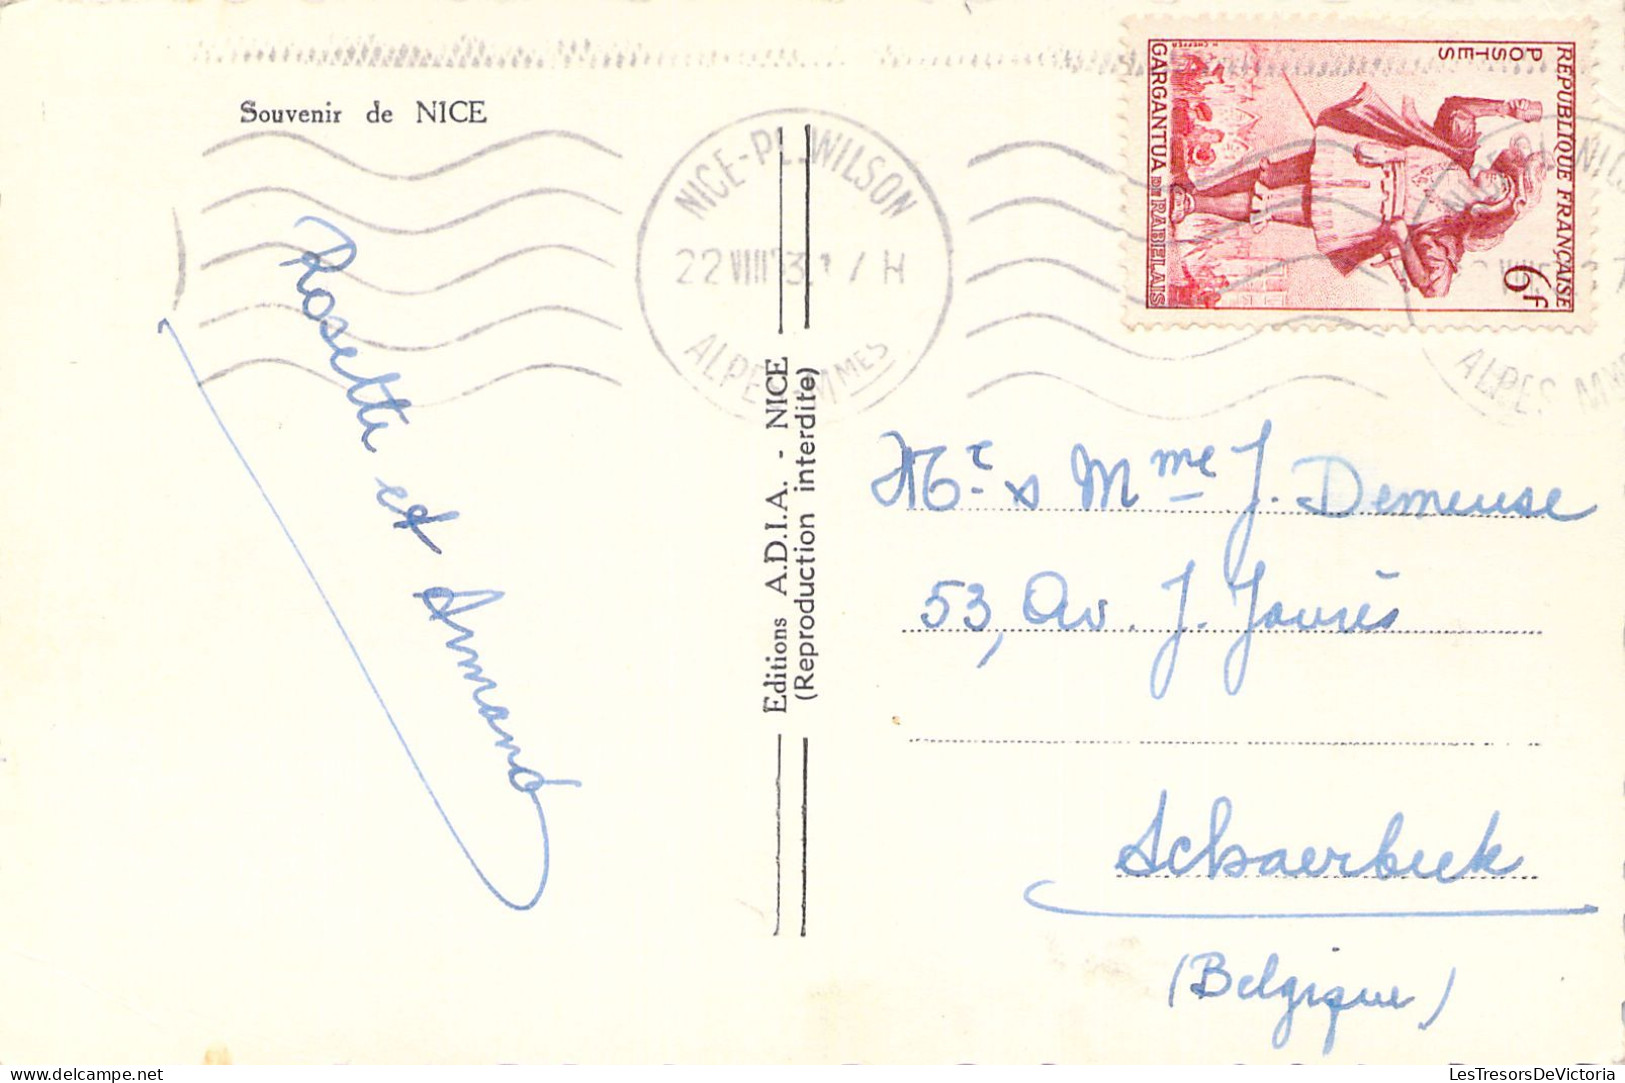 Souvenir de NICE
Rosette et Armand
Editions A.D.I.A. - NICE
(Reproduction interdite)
NICE-PL. WILSON
22 VIII 53 17 H
ALPES-MMES
REPUBLIQUE FRANÇAISE
POSTES
6f
GARGANTUA DE RABELAIS
ALPES
Mr & Mme J. Demeuse
53, Av. J. Jaurès
Schaerbeek
(Belgique)
LesTresorsDeVictoria